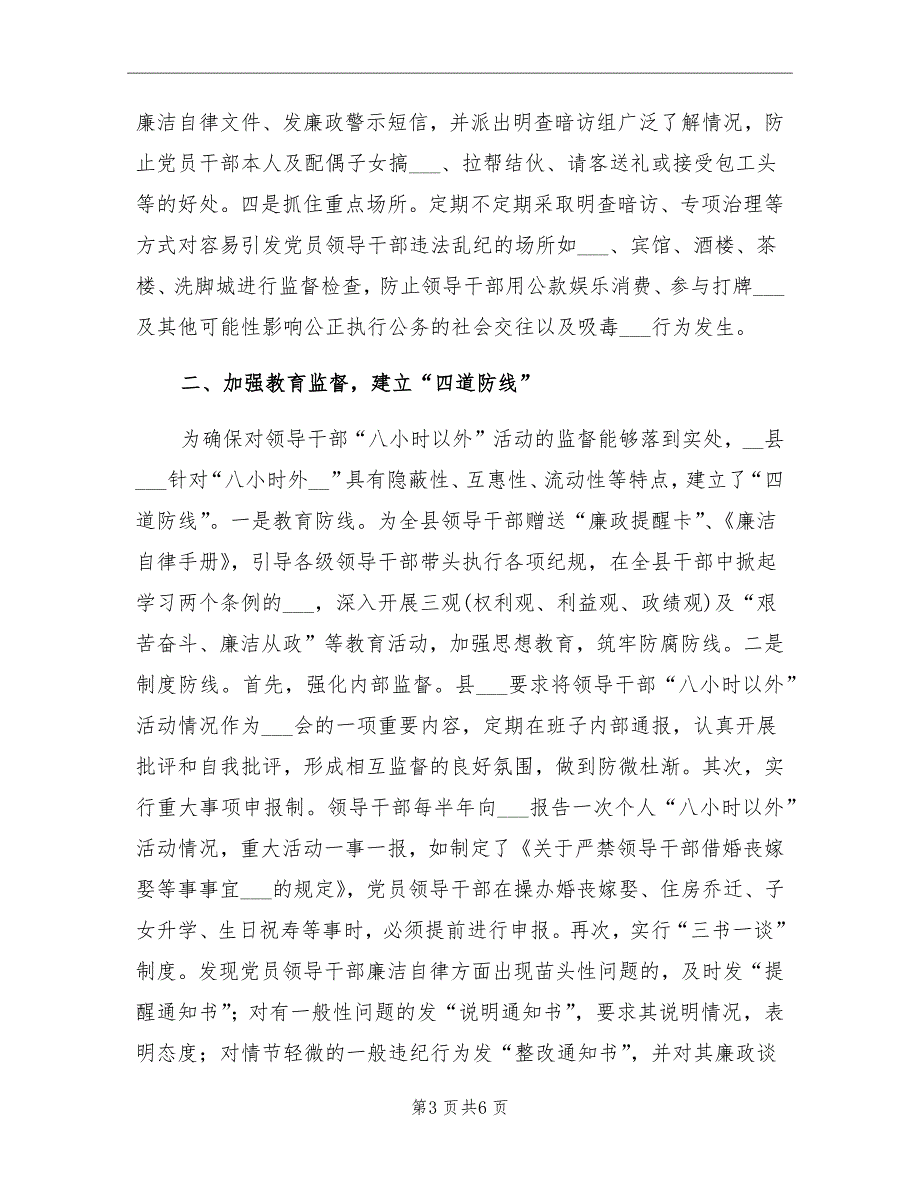 廉洁自律文件、发廉政警示短信，并派出明查暗访组广泛了解情况，防
止党员干部本人及配偶子女搞___、拉帮结伙、请客送礼或接受包工头
等的好处。四是抓住重点场所。定期不定期采取明查暗访、专项治理等
方式对容易引发党员领导干部违法乱纪的场所如___、宾馆、酒楼、茶
楼、洗脚城进行监督检查，防止领导干部用公款娱乐消费、参与打牌___
及其他可能性影响公正执行公务的社会交往以及吸毒___行为发生。
二、加强教育监督，建立“四道防线”
为确保对领导干部“八小时以外”活动的监督能够落到实处，__县
___针对“八小时外__”具有隐蔽性、互惠性、流动性等特点，建立了“四
道防线”。一是教育防线。为全县领导干部赠送“廉政提醒卡”、《廉洁
自律手册》，引导各级领导干部带头执行各项纪规，在全县干部中掀起
学习两个条例的___，深入开展三观(权利观、利益观、政绩观)及“艰
苦奋斗、廉洁从政”等教育活动，加强思想教育，筑牢防腐防线。二是
制度防线。首先，强化内部监督。县___要求将领导干部“八小时以外”
活动情况作为___会的一项重要内容，定期在班子内部通报，认真开展
批评和自我批评，形成相互监督的良好氛围，做到防微杜渐。其次，实
行重大事项申报制。领导干部每半年向___报告一次个人“八小时以外”
活动情况，重大活动一事一报，如制定了《关于严禁领导干部借婚丧嫁
娶等事事宜___的规定》，党员领导干部在操办婚丧嫁娶、住房乔迁、子
女升学、生日祝寿等事时，必须提前进行申报。再次，实行“三书一谈”
制度。发现党员领导干部廉洁自律方面出现苗头性问题的，及时发“提
醒通知书”；对有一般性问题的发“说明通知书”，要求其说明情况，表
明态度；对情节轻微的一般违纪行为发“整改通知书”，并对其廉政谈
第3 页共6 页